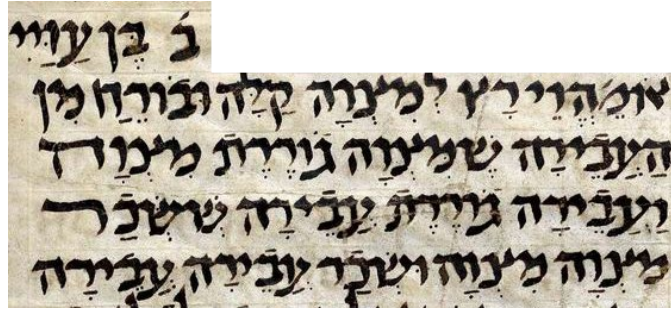 ב בן עזיי
אומ' הוי רץ למצוה קלה ובורח מן
העבירה שמצוה גוררת מצוה
ועבירה גוררת עבירה ששכר
מצוה מצוה ושכר עבירה עבירה